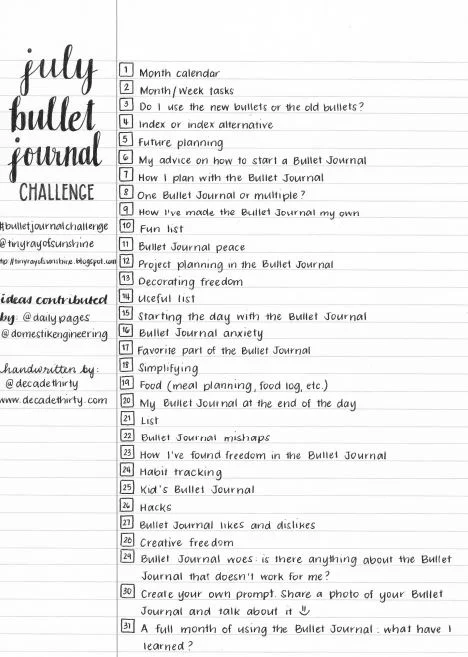 july
bullet
journal
CHALLENGE
#bulletjournalchallenge
@tinyrayofsunshine
http://tinyrayofsunshine.blogspot.com
ideas contributed
by: @dailypages
@domestikengineering
handwritten by:
@decadethirty
www.decadethirty.com
1 Month calendar
2 Month/Week tasks
3 Do I use the new bullets or the old bullets?
4 Index or index alternative
5 Future planning
6 My advice on how to start a Bullet Journal
7 How I plan with the Bullet Journal
8 One Bullet Journal or multiple?
9 How I've made the Bullet Journal my own
10 Fun list
11 Bullet Journal peace
12 Project planning in the Bullet Journal
13 Decorating freedom
14 Useful list
15 Starting the day with the Bullet Journal
16 Bullet Journal anxiety
17 Favorite part of the Bullet Journal
18 Simplifying
19 Food (meal planning, food log, etc.)
20 My Bullet Journal at the end of the day
21 List
22 Bullet Journal mishaps
23 How I've found freedom in the Bullet Journal
24 Habit tracking
25 Kid's Bullet Journal
26 Hacks
27 Bullet Journal likes and dislikes
28 Creative freedom
29 Bullet Journal woes: is there anything about the Bullet
Journal that doesn't work for me?
30 Create your own prompt. Share a photo of your Bullet
Journal and talk about it
31 A full month of using the Bullet Journal: what have I
learned?